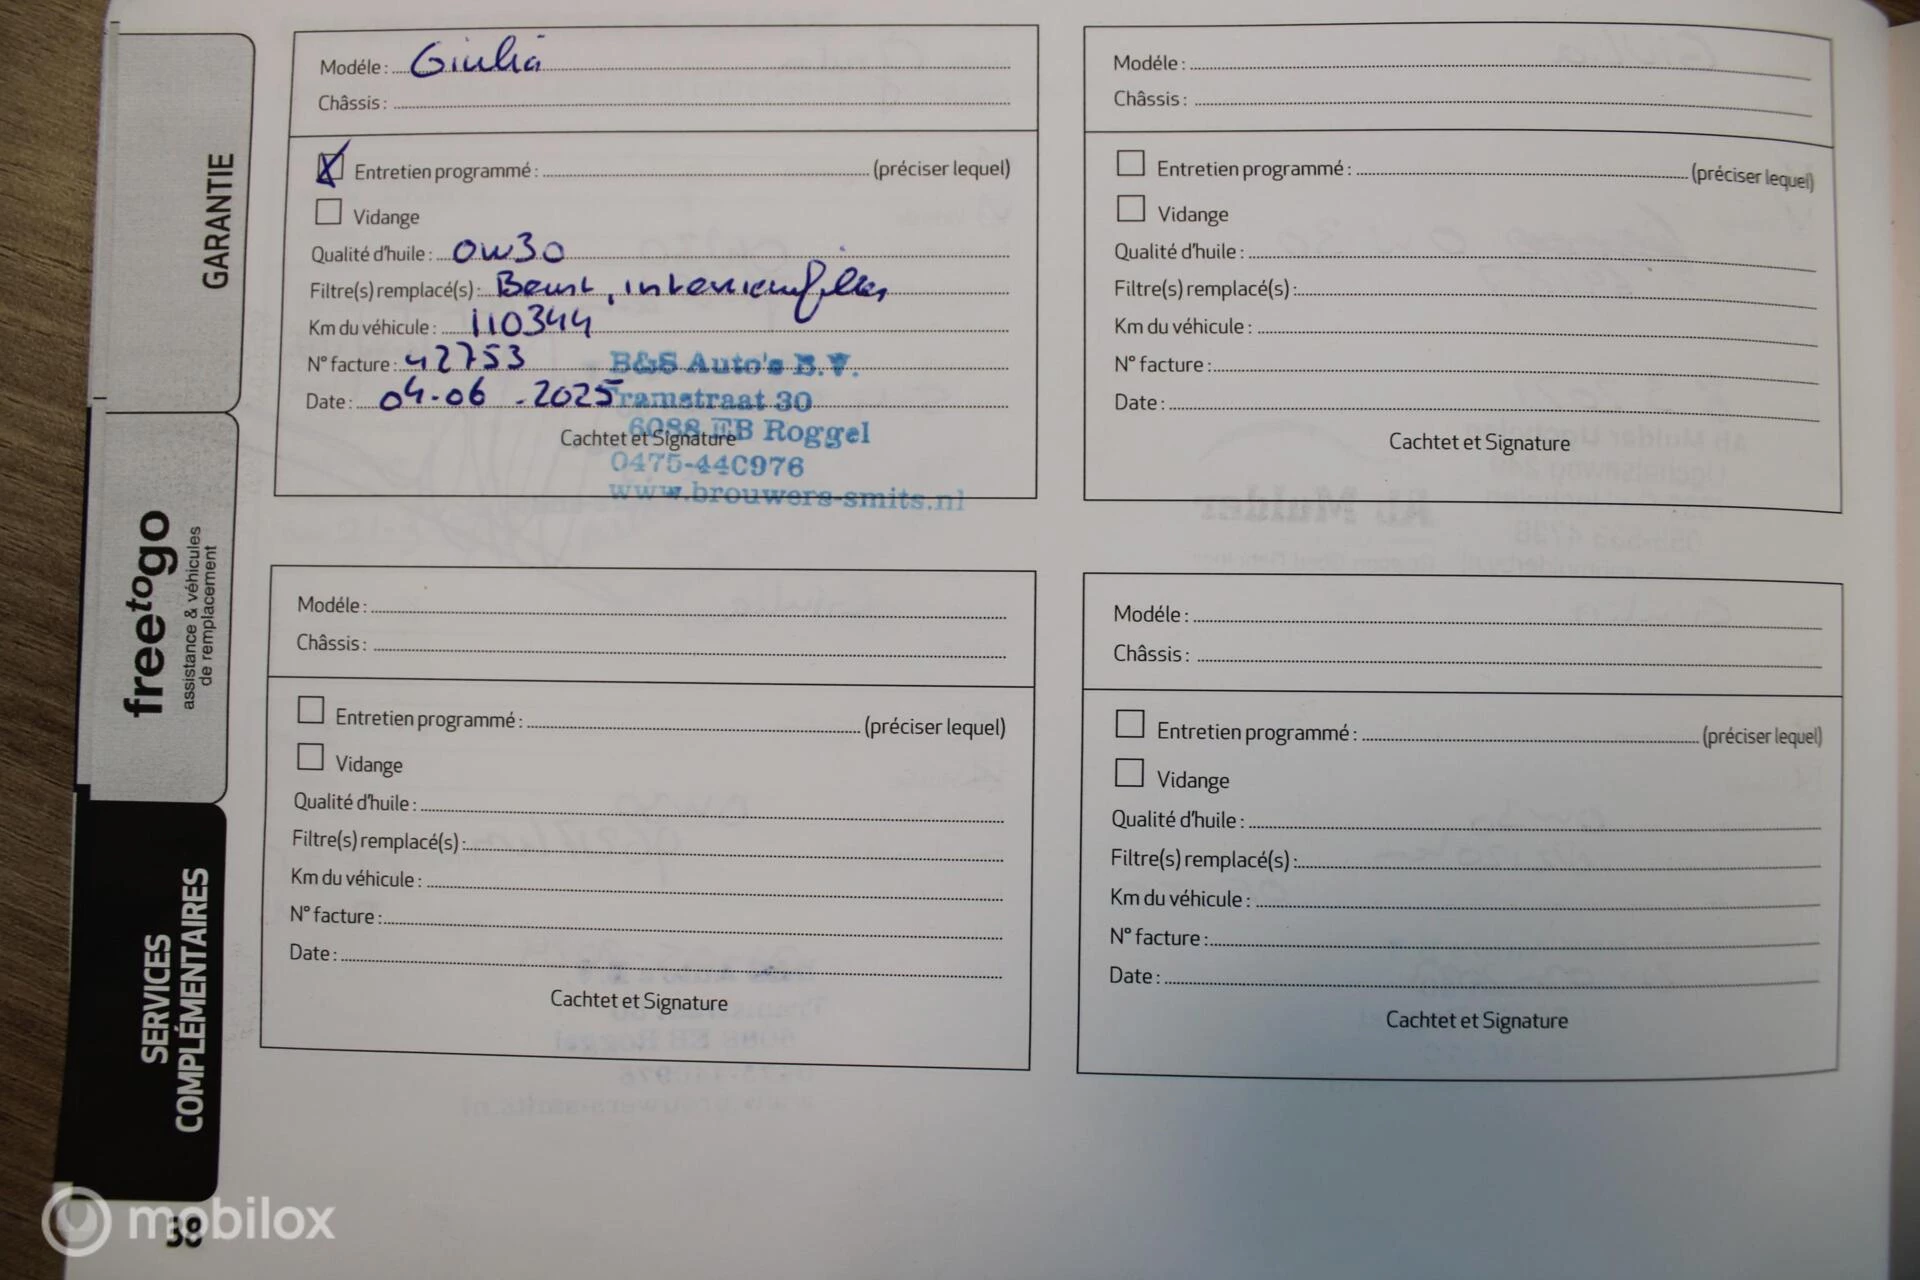 GARANTIE
freetogo
assistance & véhicules
de remplacement
SERVICES
COMPLÉMENTAIRES
Modéle : Giulia
Châssis :
Entretien programmé : (préciser lequel)
Vidange
Qualité d'huile : 0w30
Filtre(s) remplacé(s) :
Km du véhicule : 110344
N° facture : 42753
Date : 04-06-2025
Cachtet et Signature
B&S Auto's B.V.
Tramstraat 30
6088 EB Roggel
0475-440976
www.brouwers-smits.nl
Modéle :
Châssis :
Entretien programmé : (préciser lequel)
Vidange
Qualité d'huile :
Filtre(s) remplacé(s) :
Km du véhicule :
N° facture :
Date :
Cachtet et Signature
Modéle :
Châssis :
Entretien programmé : (préciser lequel)
Vidange
Qualité d'huile :
Filtre(s) remplacé(s) :
Km du véhicule :
N° facture :
Date :
Cachtet et Signature
Modéle :
Châssis :
Entretien programmé : (préciser lequel)
Vidange
Qualité d'huile :
Filtre(s) remplacé(s) :
Km du véhicule :
N° facture :
Date :
Cachtet et Signature
mobilox
38